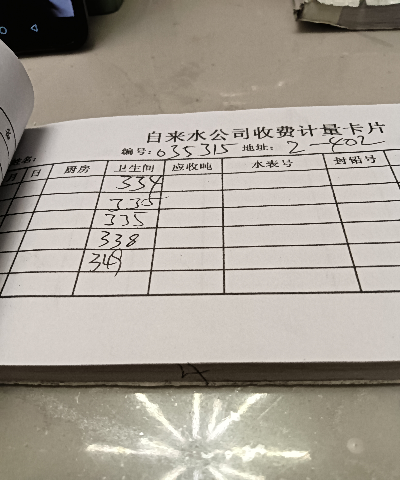 自来水公司收费计量卡片
编号: 035315 地址: 2-402
日 厨房 卫生间 应收吨 水表号 封铅号
334
335
335
338
4